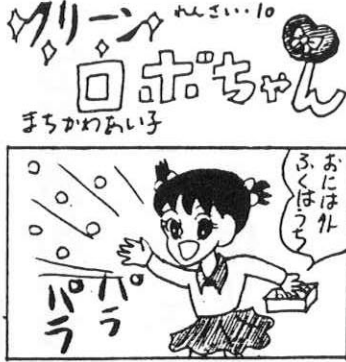 グリーン
れんさい・・10
ロボちゃん
まちかわあい子
おには外
ふくはうち
パラ
パラ